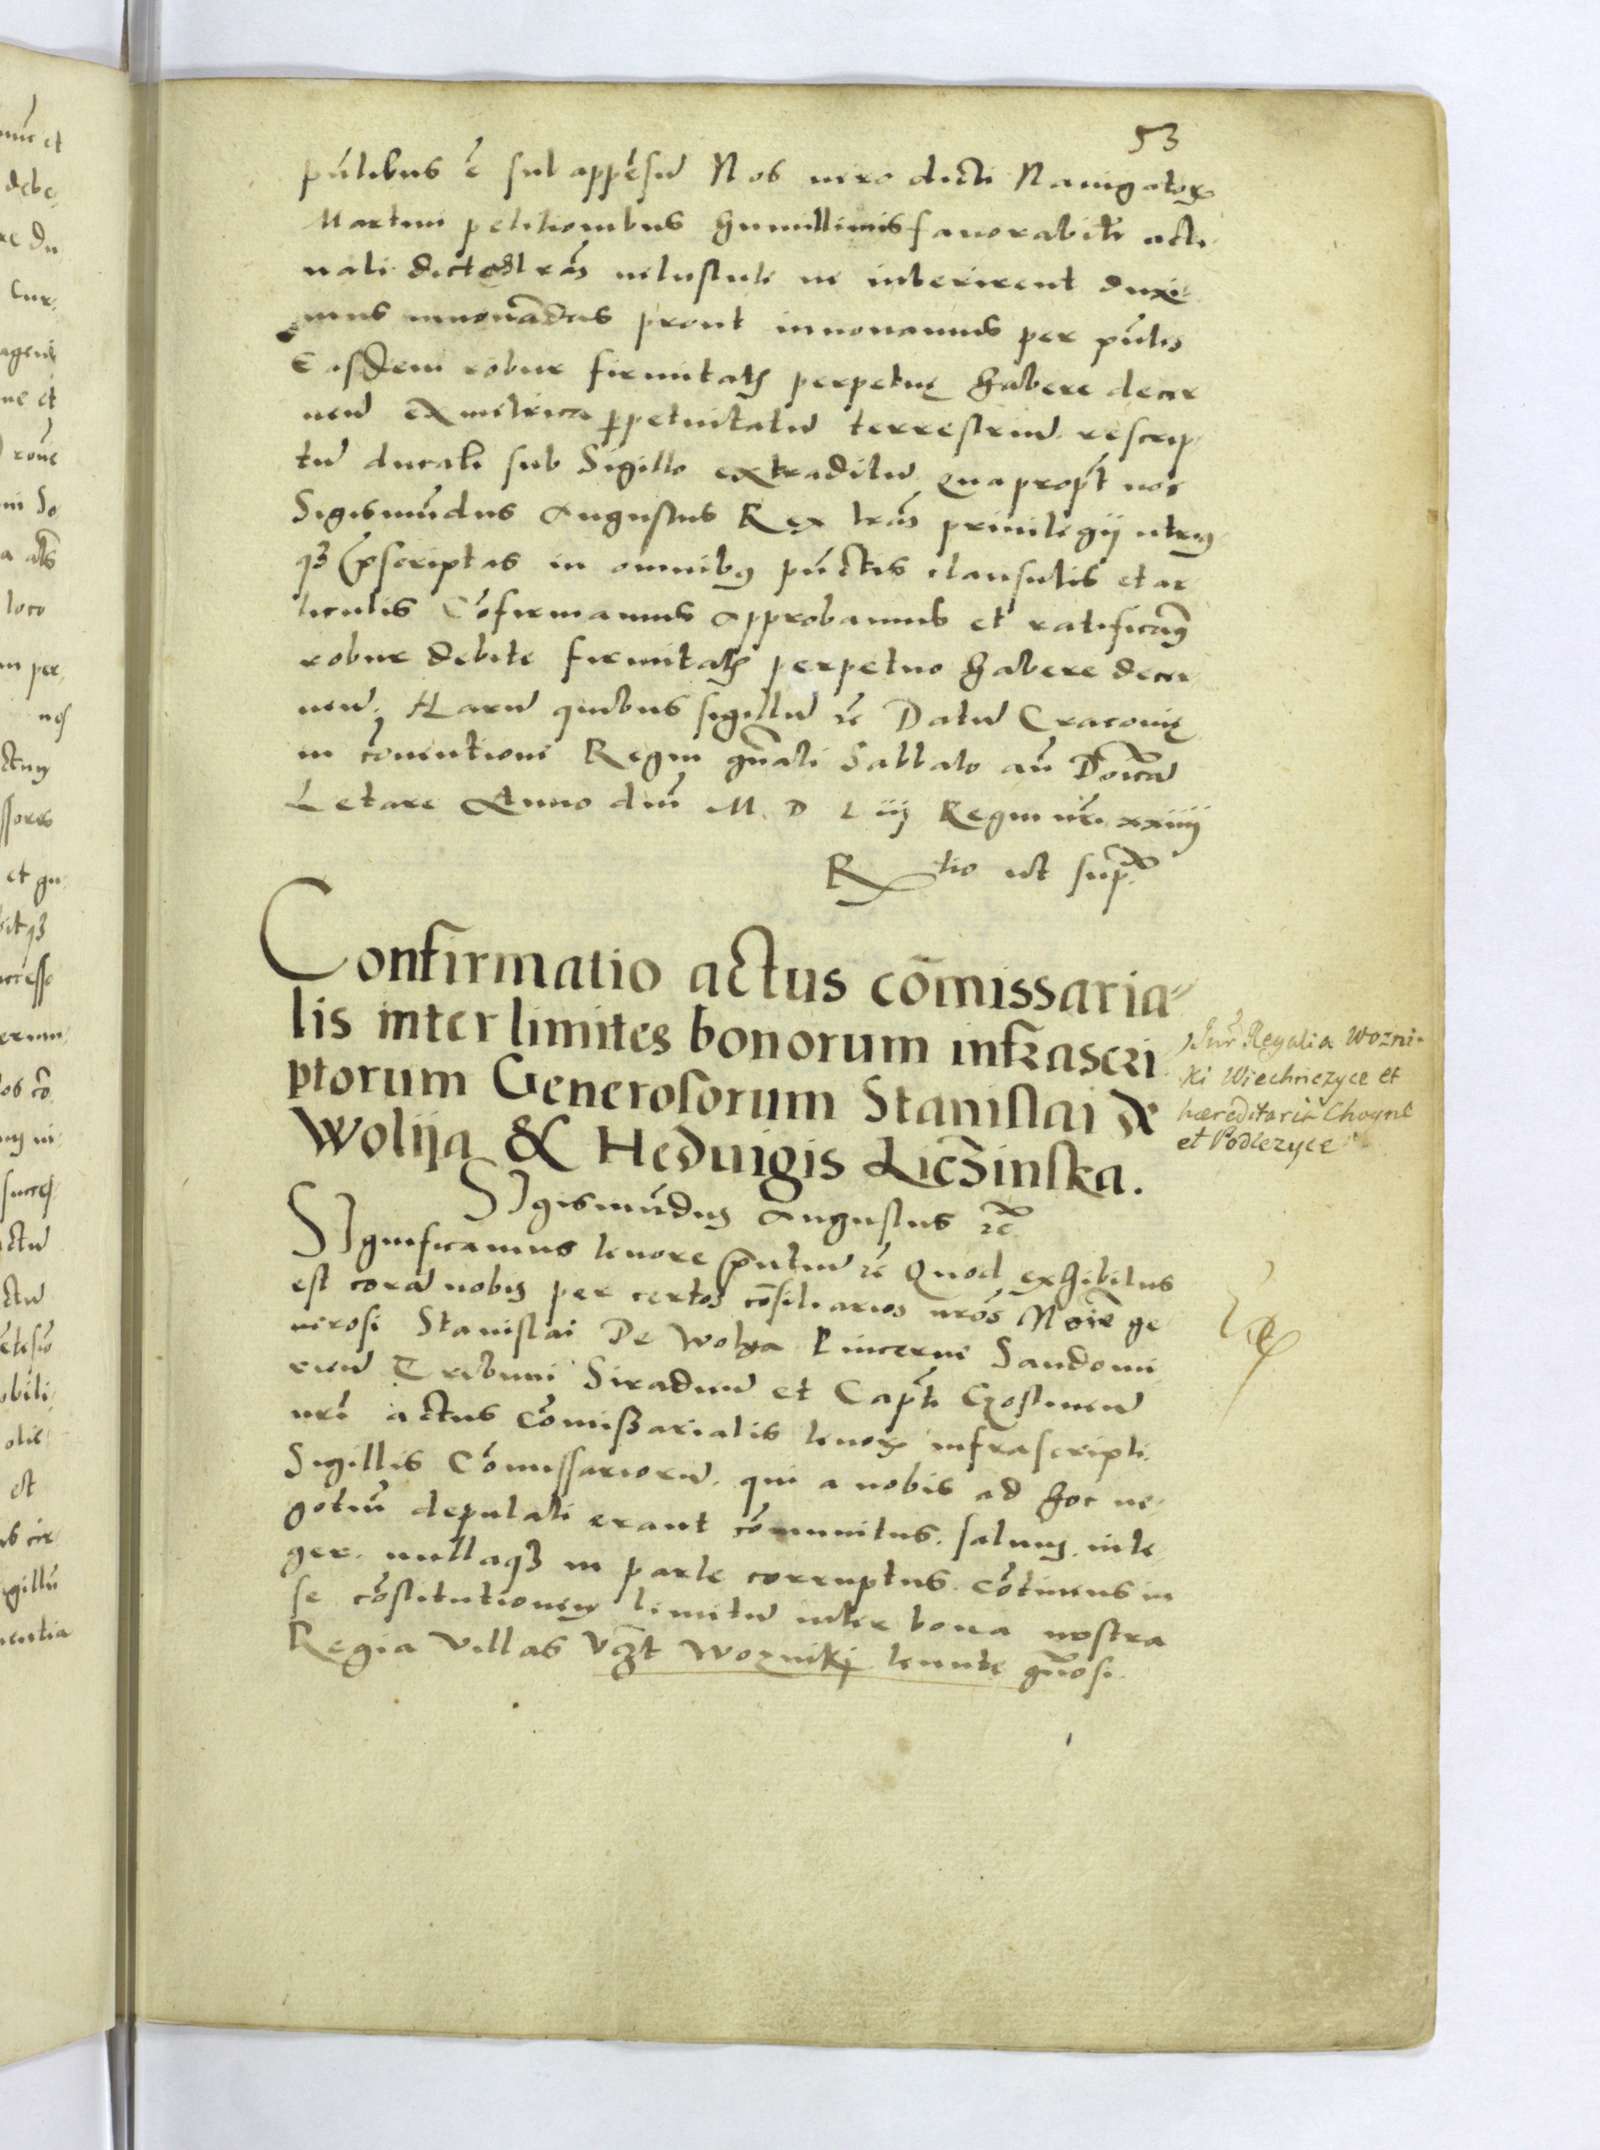 53
pñtibus ẽ subappẽsũ Nos vero dicti Navigatorꝭ
Martini petitionibus humillimis favorabilr̃ acti
vati dictas lrãs vetustate ne interirent duxi
mus innovãdas prout innovamus per pñtes
Easdem robur firmitatis perpetuę habere decer
neñ ex metrica ꝑpetuitatũ terrestriũ rescrip
tũ ducali sub Sigillo extraditũ Quapropt̃ nos
Sigismũdus Augustus Rex lrãs privilegij utrius
qꝫ p̃scriptas in omnibꝰ pũctis clausulis et ar
ticulis Cõfirmamus Approbamus et ratificamꝰ
robur debite firmitatis perpetuo habere decer
neñ. Harũ quibus sigillũ &c̃ Datũ Cracovię
in cõventione Regni gñali Sabbato añ Dõicã
Letare Anno dñi M. D. L iij Regni nr̃i xxiiij
R tio ut supr̃
Confirmatio actus cõmissaria
lis inter limites bonorum infrascri
ptorum Generosorum Stanislai de
Wolija & Hedvigis Liczinska.
Inr̃ Regalia Wozni-
ki Wiechniczyce et
hæreditaria Choyne
et Podlezyce
SIgismũdus Augustus &c̃
SIgnificamus tenore p̃ntiũ &c̃ Quod exhibitus
est corã nobis per certos cõsiliarios nr̃os Noĩe ge
nerosi Stanislai De Wolya Pincerne Sandomi
rieñ Tribuni Siradieñ et Capĩti Gostineñ
nr̃i actus Cõmissarialis tenoris infrascripti.
Sigillis Cõmissariorũ. qui a nobis ad hoc ne
gotiũ deputati erant cõmunitus. salvus. inte
ger. nullaqꝫ in parte corruptus. cõtinens in
se cõstitutionem limitũ inter bona nostra
Regia villas vꝫt Wozniki tenute gñosi